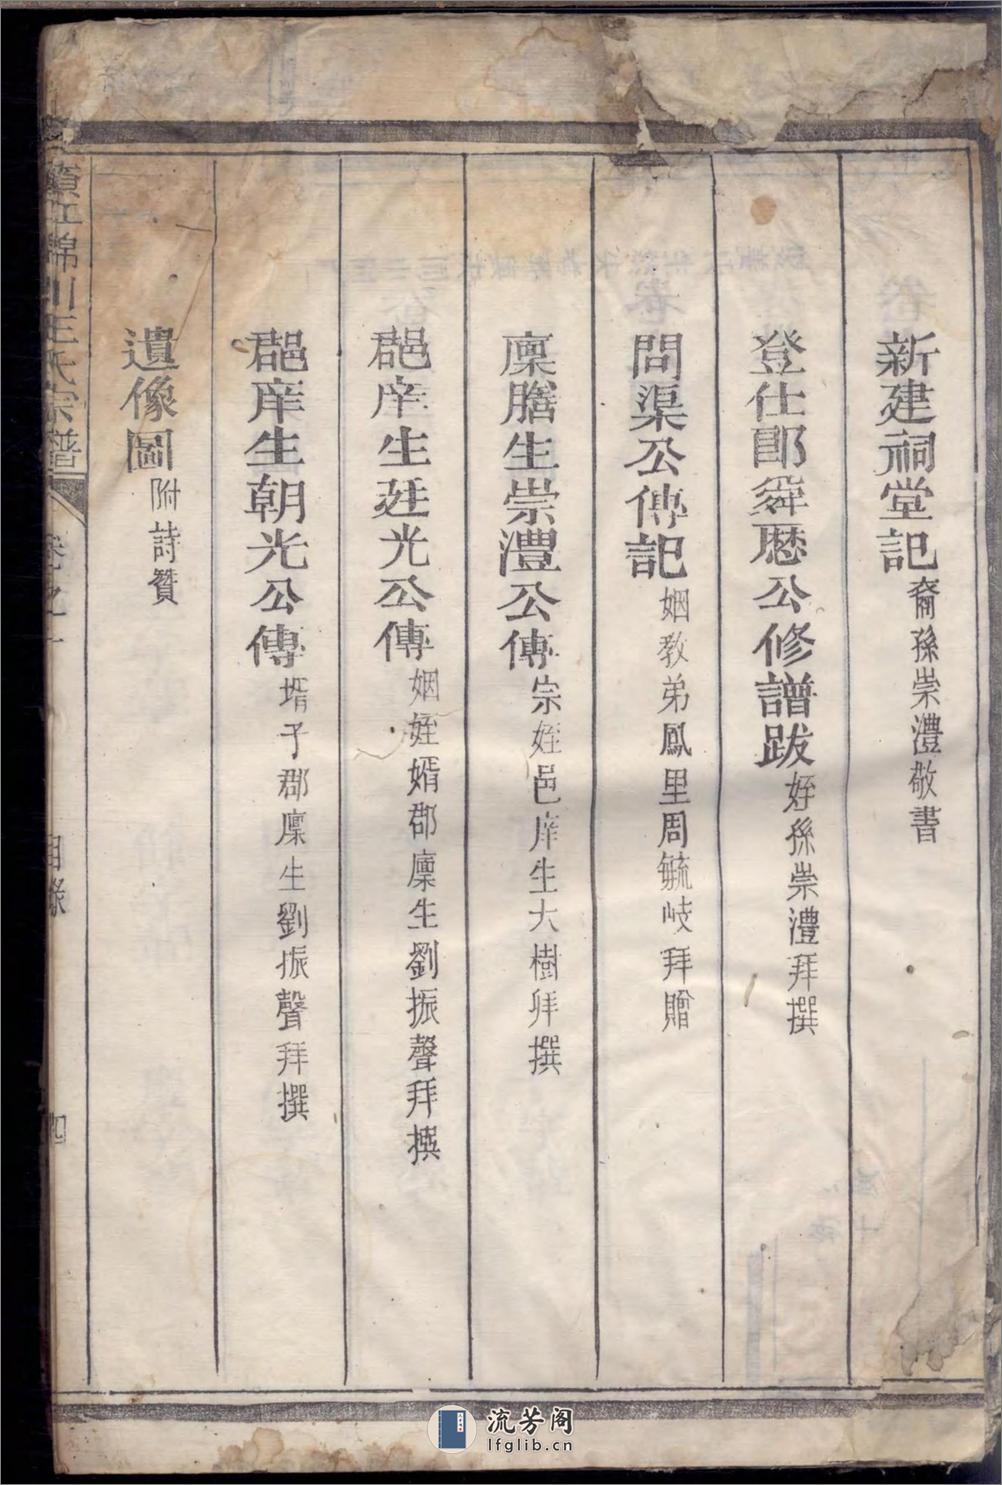 新建祠堂記裔孫崇澧敬書
登仕郎舜歷公修譜跋姪孫崇澧拜撰
問渠公傳記姻教弟鳳里周毓岐拜贈
廩膳生崇澧公傳宗姪邑庠生大樹拜撰
郡邑庠生廷光公傳姻姪婿郡廩生劉振聲拜撰
郡邑庠生朝光公傳壻子郡廩生劉振聲拜撰
遺像圖附詩贊
江錦川王氏宗譜
卷之一
目錄
九
流芳阁
lfglib.cn